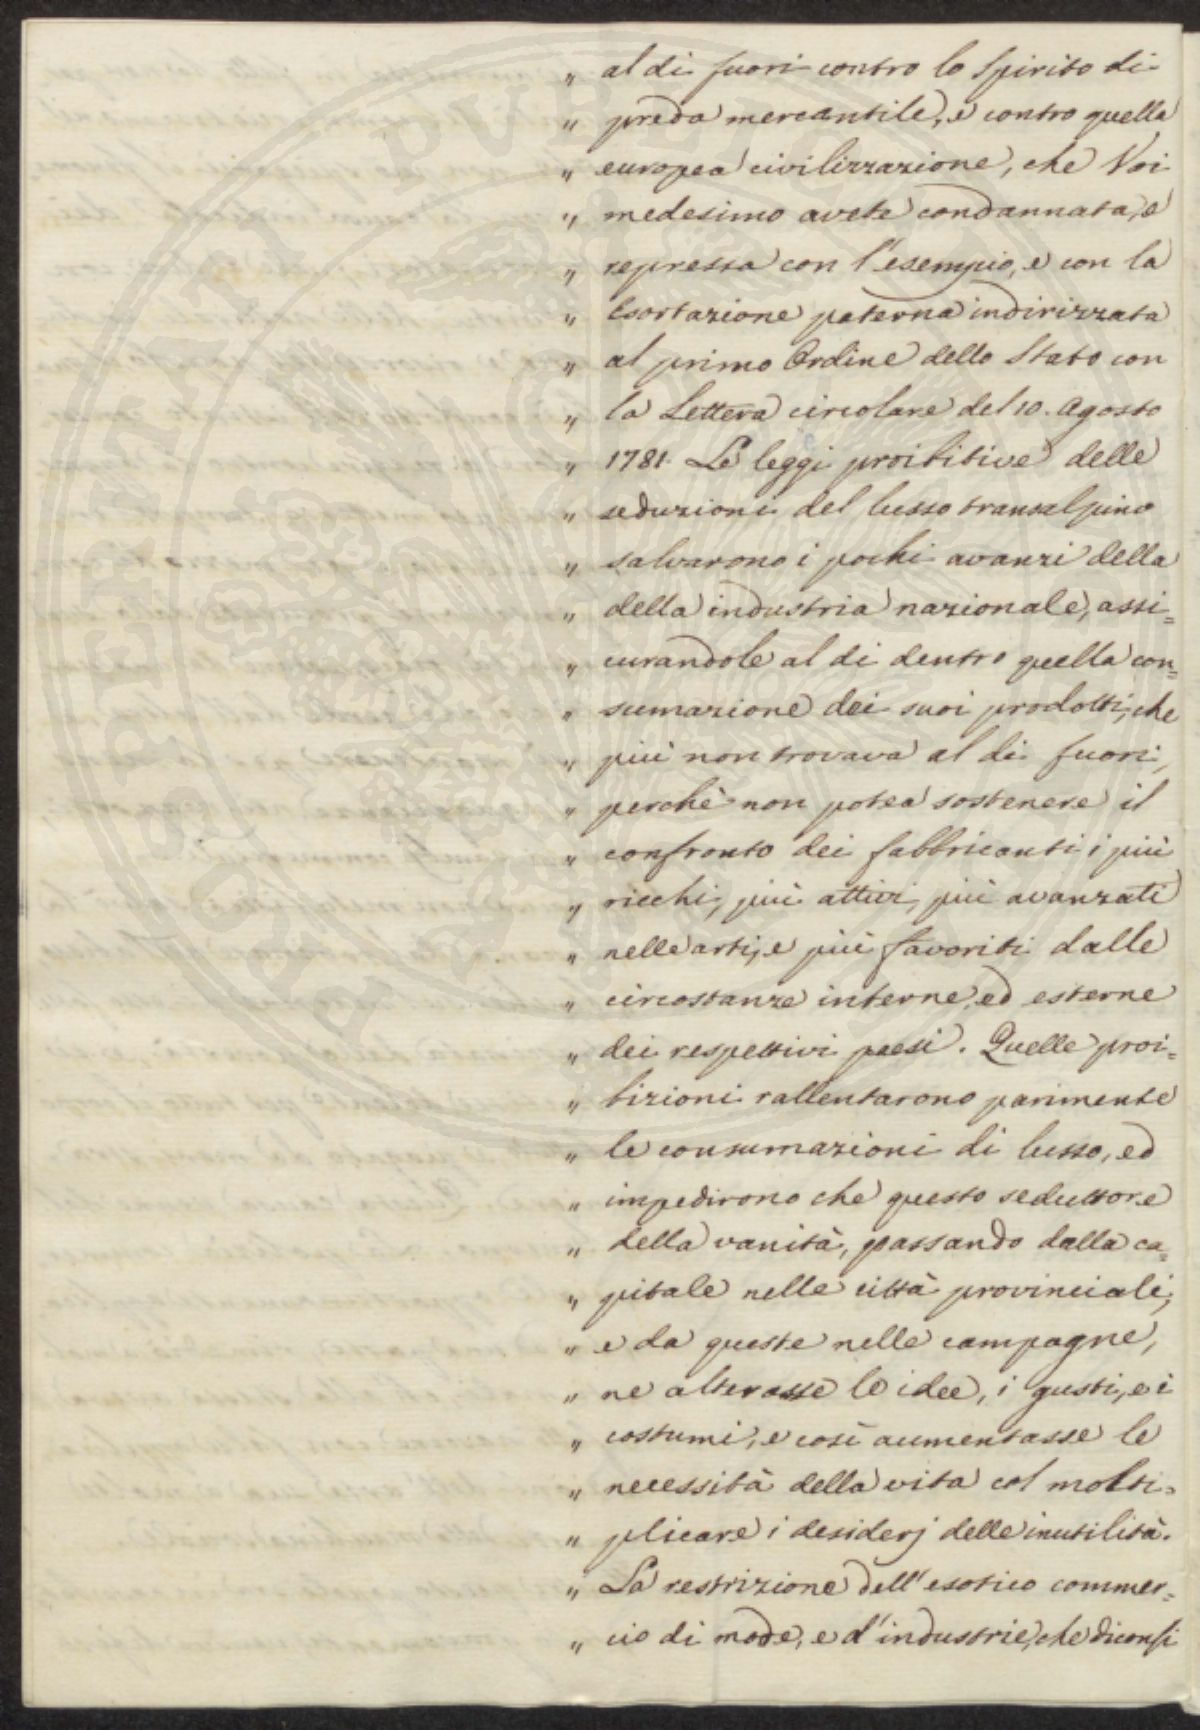 „ al di fuori contro lo Spirito di
„ preda mercantile, e contro quella
„ europea civilizzazione, che Voi
„ medesimo avete condannata, e
„ repressa con l'esempio, e con la
„ Esortazione paterna indirizzata
„ al primo Ordine dello Stato con
„ la Lettera circolare del 10. Agosto
„ 1781. Le leggi proibitive delle
„ seduzioni del lusso transalpino
„ salvarono i pochi avanzi della
„ della industria nazionale, assi=
„ curandole al di dentro quella con=
„ sumazione dei suoi prodotti, che
„ più non trovava al di fuori,
„ perchè non potea sostenere il
„ confronto dei fabbricanti i più
„ ricchi, più attivi, più avanzati
„ nelle arti, e più favoriti dalle
„ circostanze interne, ed esterne
„ dei respettivi paesi. Quelle proi=
„ bizioni rallentarono parimente
„ le consumazioni di lusso, ed
„ impedirono che questo seduttore
„ della vanità, passando dalla ca=
„ pitale nelle città provinciali,
„ e da queste nelle campagne,
„ ne alterasse le idee, i gusti, e i
„ costumi, e così aumentasse le
„ necessità della vita col molti=
„ plicare i desiderj delle inutilità.
„ La restrizione dell'esotico commer=
„ cio di mode, e d'industrie, che diconsi
PUBLI